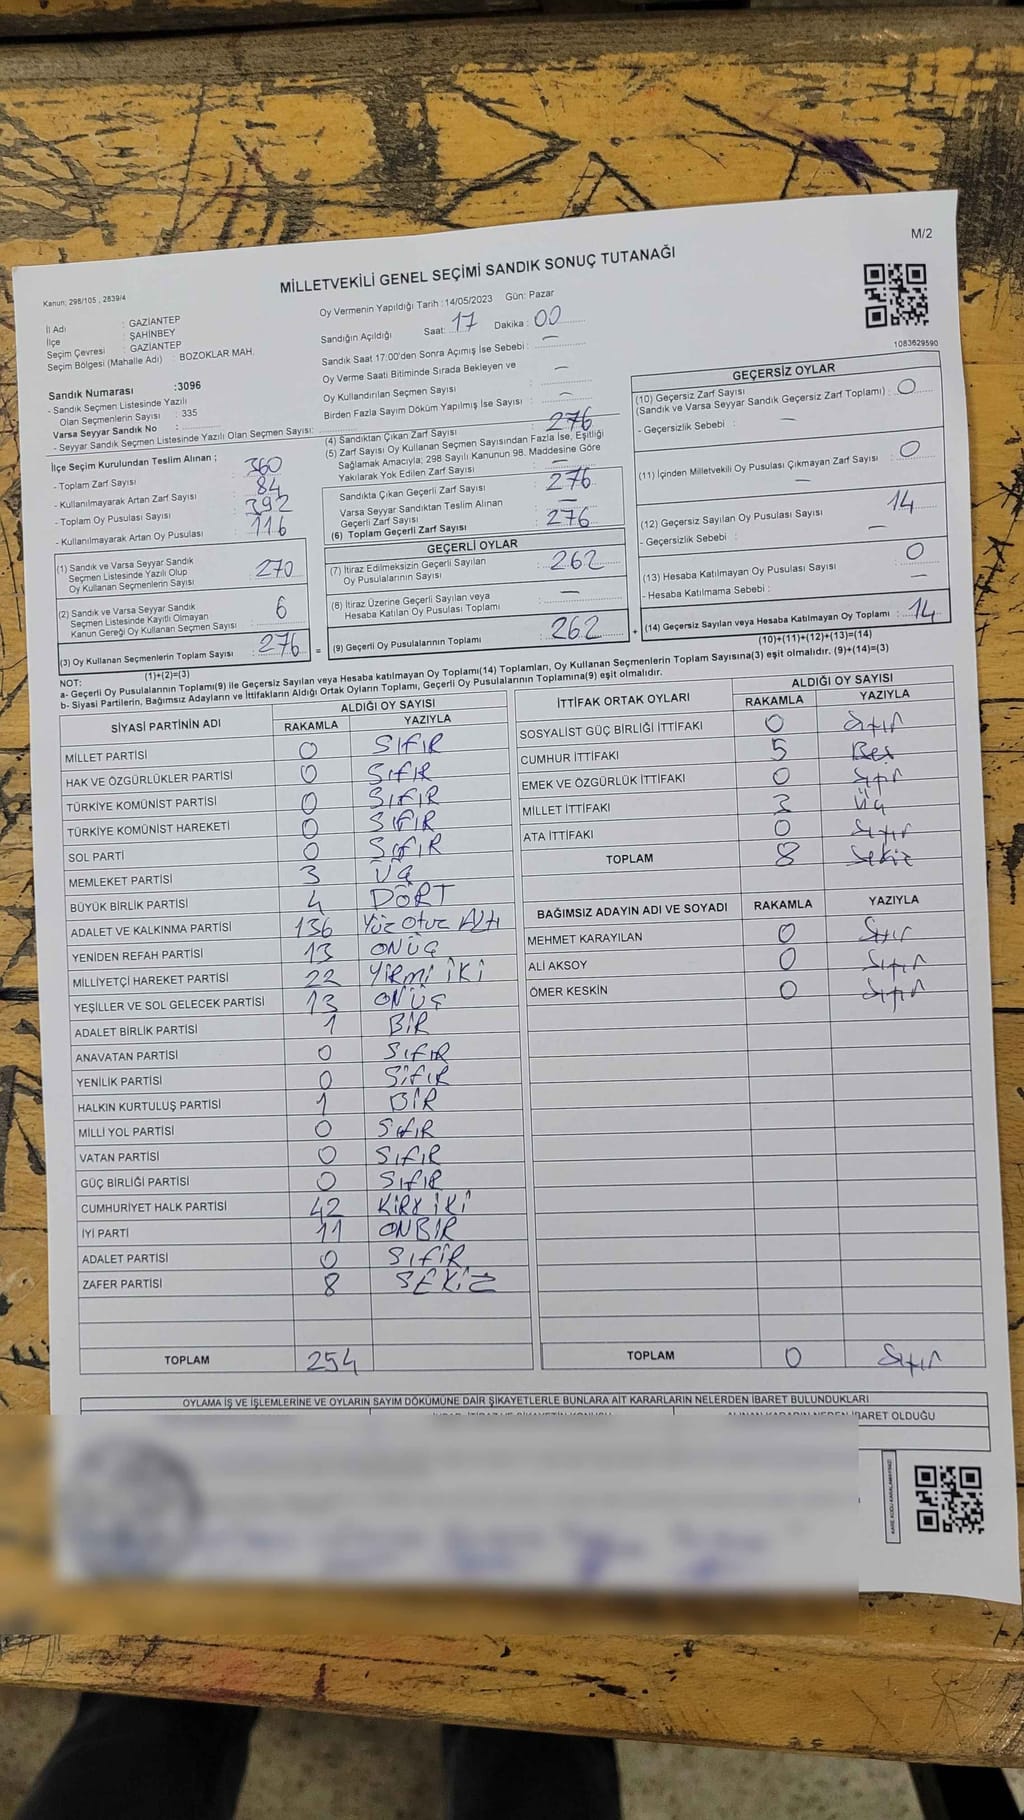 M/2
MİLLETVEKİLİ GENEL SEÇİMİ SANDIK SONUÇ TUTANAĞI
Kanun; 298/105 , 2839/4
İl Adı : GAZİANTEP
İlçe : ŞAHİNBEY
Seçim Çevresi : GAZİANTEP
Seçim Bölgesi (Mahalle Adı) : BOZOKLAR MAH.
Sandık Numarası :3096
- Sandık Seçmen Listesinde Yazılı
Olan Seçmenlerin Sayısı : 335
Varsa Seyyar Sandık No :
- Seyyar Sandık Seçmen Listesinde Yazılı Olan Seçmen Sayısı:
Oy Vermenin Yapıldığı Tarih :14/05/2023 Gün: Pazar
Sandığın Açıldığı Saat: 17 Dakika : 00
Sandık Saat 17:00'den Sonra Açımış İse Sebebi : —
Oy Verme Saati Bitiminde Sırada Bekleyen ve
Oy Kullandırılan Seçmen Sayısı : —
Birden Fazla Sayım Döküm Yapılmış İse Sayısı : —
1083629590
İlçe Seçim Kurulundan Teslim Alınan ;
- Toplam Zarf Sayısı : 360
- Kullanılmayarak Artan Zarf Sayısı : 84
- Toplam Oy Pusulası Sayısı : 392
- Kullanılmayarak Artan Oy Pusulası : 116
(1) Sandık ve Varsa Seyyar Sandık
Seçmen Listesinde Yazılı Olup
Oy Kullanan Seçmenlerin Sayısı : 270
(2) Sandık ve Varsa Seyyar Sandık
Seçmen Listesinde Kayıtlı Olmayan
Kanun Gereği Oy Kullanan Seçmen Sayısı : 6
(3) Oy Kullanan Seçmenlerin Toplam Sayısı : 276
(1)+(2)=(3)
(4) Sandıktan Çıkan Zarf Sayısı : 276
(5) Zarf Sayısı Oy Kullanan Seçmen Sayısından Fazla İse, Eşitliği
Sağlamak Amacıyla; 298 Sayılı Kanunun 98. Maddesine Göre
Yakılarak Yok Edilen Zarf Sayısı : —
Sandıkta Çıkan Geçerli Zarf Sayısı : 276
Varsa Seyyar Sandıktan Teslim Alınan
Geçerli Zarf Sayısı : —
(6) Toplam Geçerli Zarf Sayısı : 276
GEÇERLİ OYLAR
(7) İtiraz Edilmeksizin Geçerli Sayılan
Oy Pusulalarının Sayısı : 262
(8) İtiraz Üzerine Geçerli Sayılan veya
Hesaba Katılan Oy Pusulası Toplamı : —
(9) Geçerli Oy Pusulalarının Toplamı : 262
GEÇERSİZ OYLAR
(10) Geçersiz Zarf Sayısı
(Sandık ve Varsa Seyyar Sandık Geçersiz Zarf Toplamı) : 0
- Geçersizlik Sebebi : —
(11) İçinden Milletvekili Oy Pusulası Çıkmayan Zarf Sayısı : 0
—
(12) Geçersiz Sayılan Oy Pusulası Sayısı : 14
- Geçersizlik Sebebi : —
(13) Hesaba Katılmayan Oy Pusulası Sayısı : 0
- Hesaba Katılmama Sebebi : —
(14) Geçersiz Sayılan veya Hesaba Katılmayan Oy Toplamı : 14
(10)+(11)+(12)+(13)=(14)
NOT:
a- Geçerli Oy Pusulalarının Toplamı(9) ile Geçersiz Sayılan veya Hesaba katılmayan Oy Toplamı(14) Toplamları, Oy Kullanan Seçmenlerin Toplam Sayısına(3) eşit olmalıdır. (9)+(14)=(3)
b- Siyasi Partilerin, Bağımsız Adayların ve İttifakların Aldığı Ortak Oyların Toplamı, Geçerli Oy Pusulalarının Toplamına(9) eşit olmalıdır.
SİYASİ PARTİNİN ADI ALDIĞI OY SAYISI
RAKAMLA YAZIYLA
MİLLET PARTİSİ 0 SIFIR
HAK VE ÖZGÜRLÜKLER PARTİSİ 0 SIFIR
TÜRKİYE KOMÜNİST PARTİSİ 0 SIFIR
TÜRKİYE KOMÜNİST HAREKETİ 0 SIFIR
SOL PARTİ 0 SIFIR
MEMLEKET PARTİSİ 3 ÜÇ
BÜYÜK BİRLİK PARTİSİ 4 DÖRT
ADALET VE KALKINMA PARTİSİ 136 Yüz Otuz Altı
YENİDEN REFAH PARTİSİ 13 ONÜÇ
MİLLİYETÇİ HAREKET PARTİSİ 22 YİRMİ İKİ
YEŞİLLER VE SOL GELECEK PARTİSİ 13 ONÜÇ
ADALET BİRLİK PARTİSİ 1 BİR
ANAVATAN PARTİSİ 0 SIFIR
YENİLİK PARTİSİ 0 SIFIR
HALKIN KURTULUŞ PARTİSİ 1 BİR
MİLLİ YOL PARTİSİ 0 SIFIR
VATAN PARTİSİ 0 SIFIR
GÜÇ BİRLİĞİ PARTİSİ 0 SIFIR
CUMHURİYET HALK PARTİSİ 42 KIRK İKİ
İYİ PARTİ 11 ONBİR
ADALET PARTİSİ 0 SIFIR
ZAFER PARTİSİ 8 SEKİZ
TOPLAM 254
İTTİFAK ORTAK OYLARI ALDIĞI OY SAYISI
RAKAMLA YAZIYLA
SOSYALİST GÜÇ BİRLİĞİ İTTİFAKI 0 Sıfır
CUMHUR İTTİFAKI 5 Beş
EMEK VE ÖZGÜRLÜK İTTİFAKI 0 Sıfır
MİLLET İTTİFAKI 3 Üç
ATA İTTİFAKI 0 Sıfır
TOPLAM 8 Sekiz
BAĞIMSIZ ADAYIN ADI VE SOYADI RAKAMLA YAZIYLA
MEHMET KARAYILAN 0 Sıfır
ALİ AKSOY 0 Sıfır
ÖMER KESKİN 0 Sıfır
TOPLAM 0 Sıfır
OYLAMA İŞ VE İŞLEMLERİNE VE OYLARIN SAYIM DÖKÜMÜNE DAİR ŞİKAYETLERLE BUNLARA AİT KARARLARIN NELERDEN İBARET BULUNDUKLARI
İBARET OLDUĞU